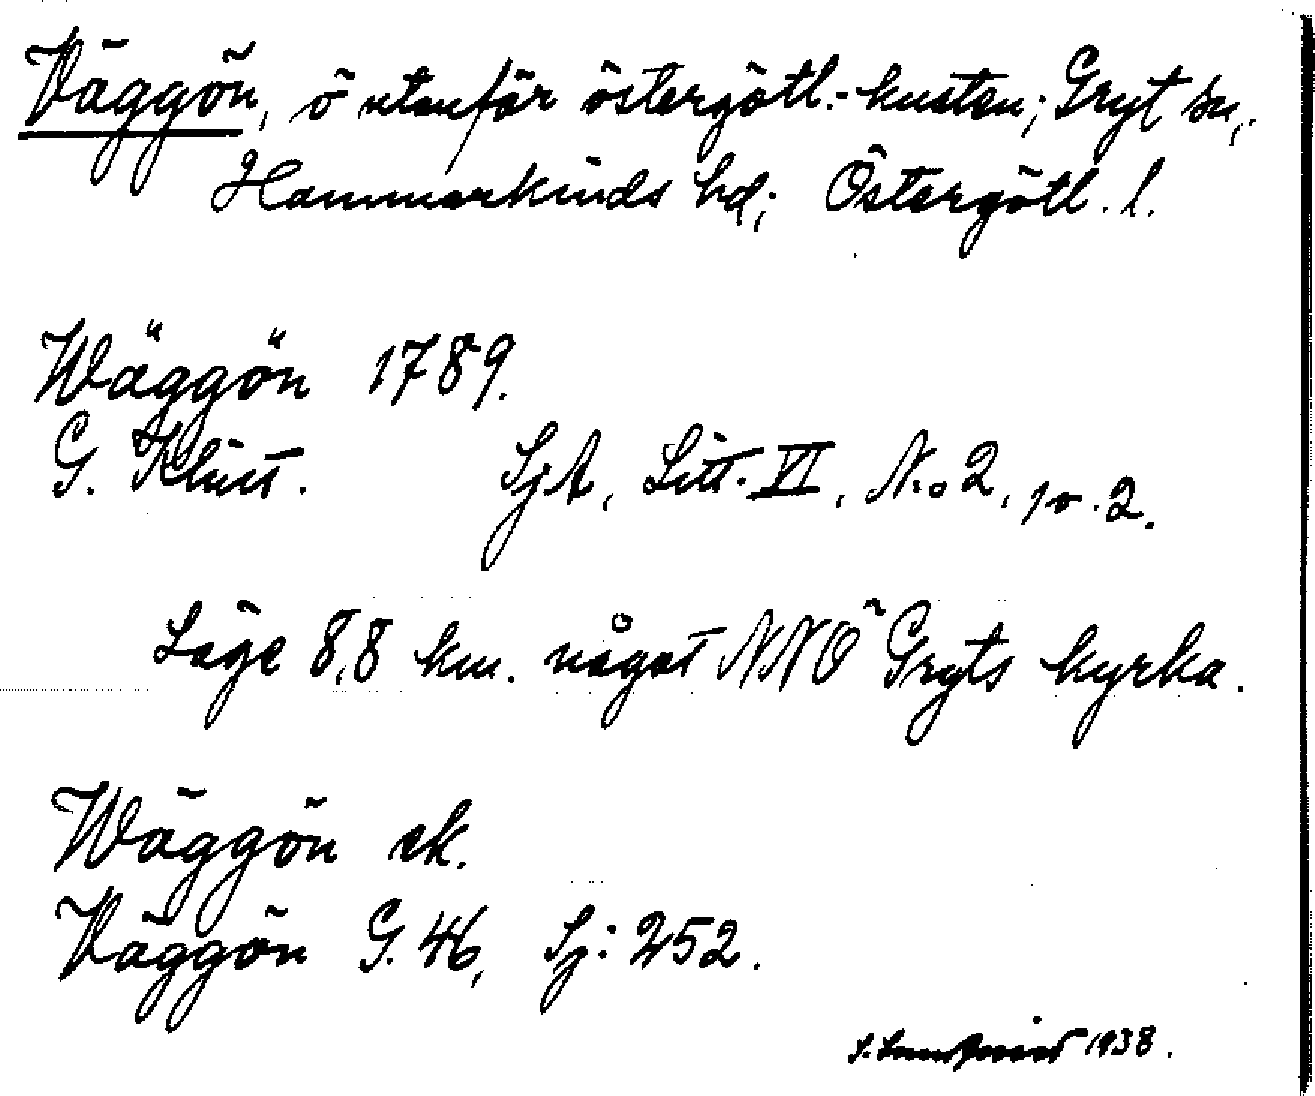 Väggön, ö utanför östergötl.-kusten; Gryt sn,
Hammarkinds hd; Östergötl. l.
Wäggön 1789.
G. Klint. SjA, Litt. VI, N:o 2, pr. 2.
Läge 8,8 km. något NNÖ Gryts kyrka.
Wäggön ek.
Väggön G. 46, Sj: 252.
1938.